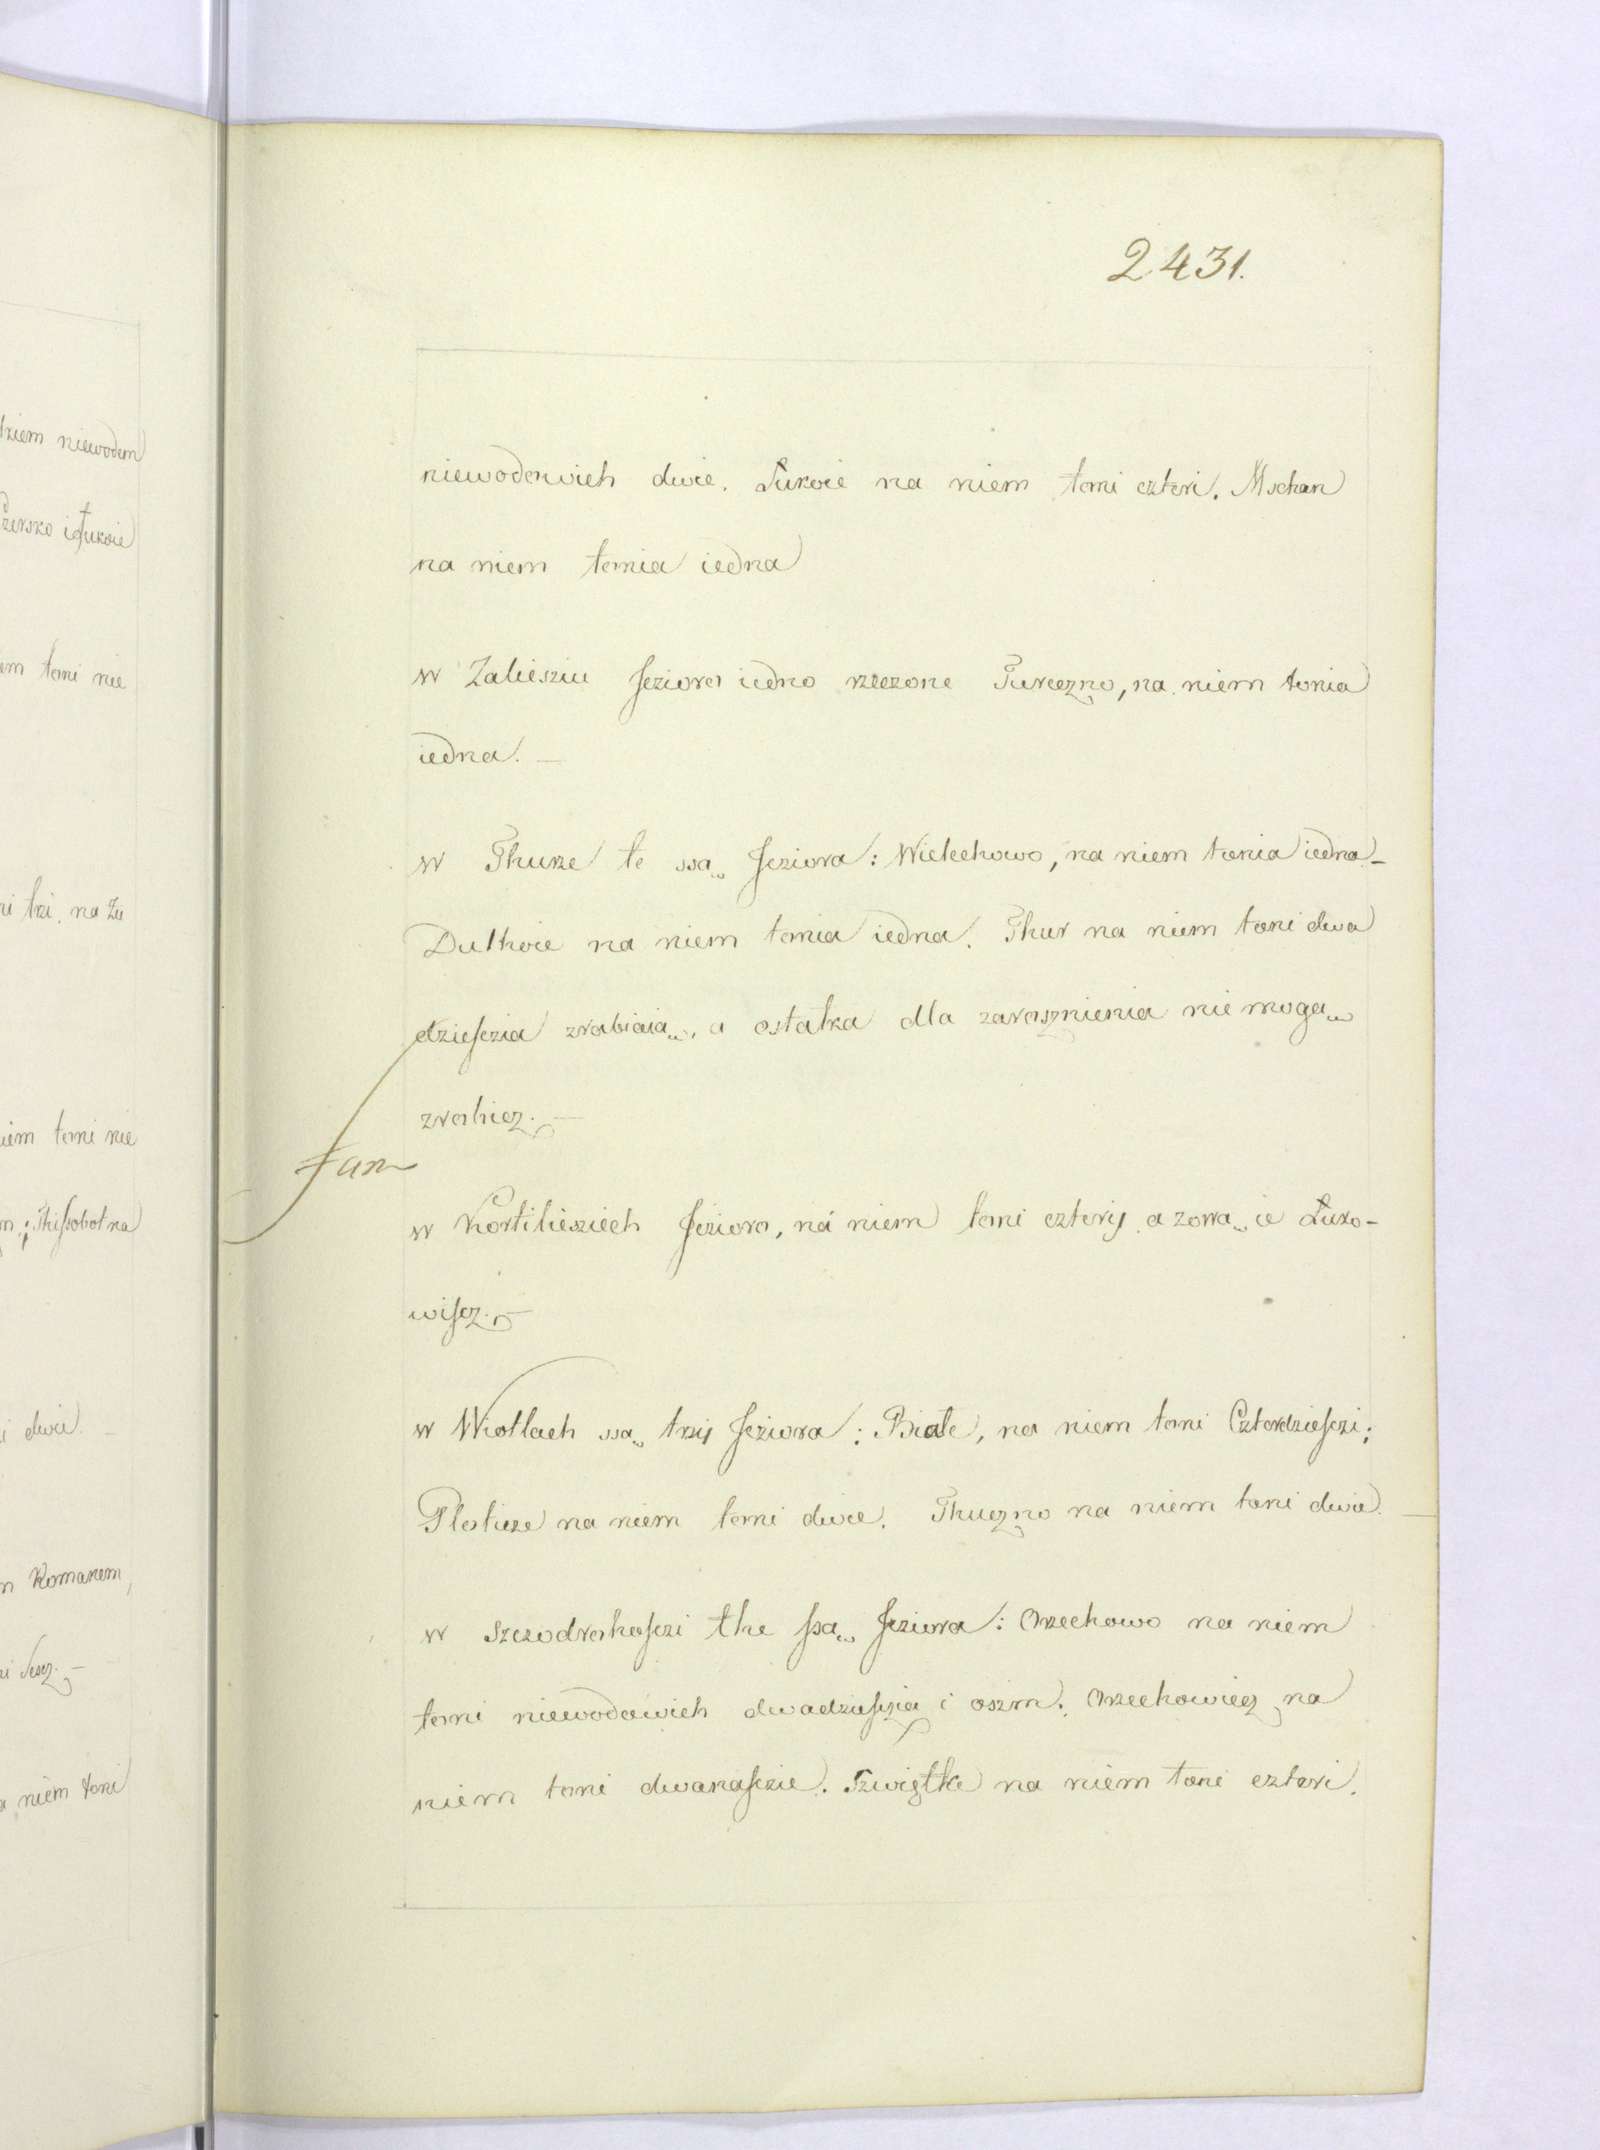 2431.
niewodowich dwie. Łukie na niem toni czteri. Mschan
na niem tonia iedna
w Zaliesziu Jezioro iedno rzeczone Turczno, na niem tonia
iedna. —
w Thurze te ssą Jeziora: Wielechowo, na niem tonia iedna —
Dulkoie na niem tonia iedna. Thur na niem toni dwa
dziesczia zrabiaią, a ostatka dla zarosznienia nie mogą
zrabicz. —
w Kortilieszіech Jezioro, na niem toni cztery a zową ie Łuko-
wiscz. —
w Wiotlach ssą trzy Jeziora: Białe, na niem toni Czterdziesczi;
Ploticze na niem toni dwie. Thuczno na niem toni dwie. —
w Szczodrohosczi the ssą Jeziora: Orzechowo na niem
toni niewodowich dwadziesczia i oszm. Orzechowiecz na
niem toni dwanasczie. Szwiętke na niem toni czteri.
tziem niewodem
em toni nie
ni trzi. na Zu
niem toni nie
i dwie. —
m Komarem,
a niem toni